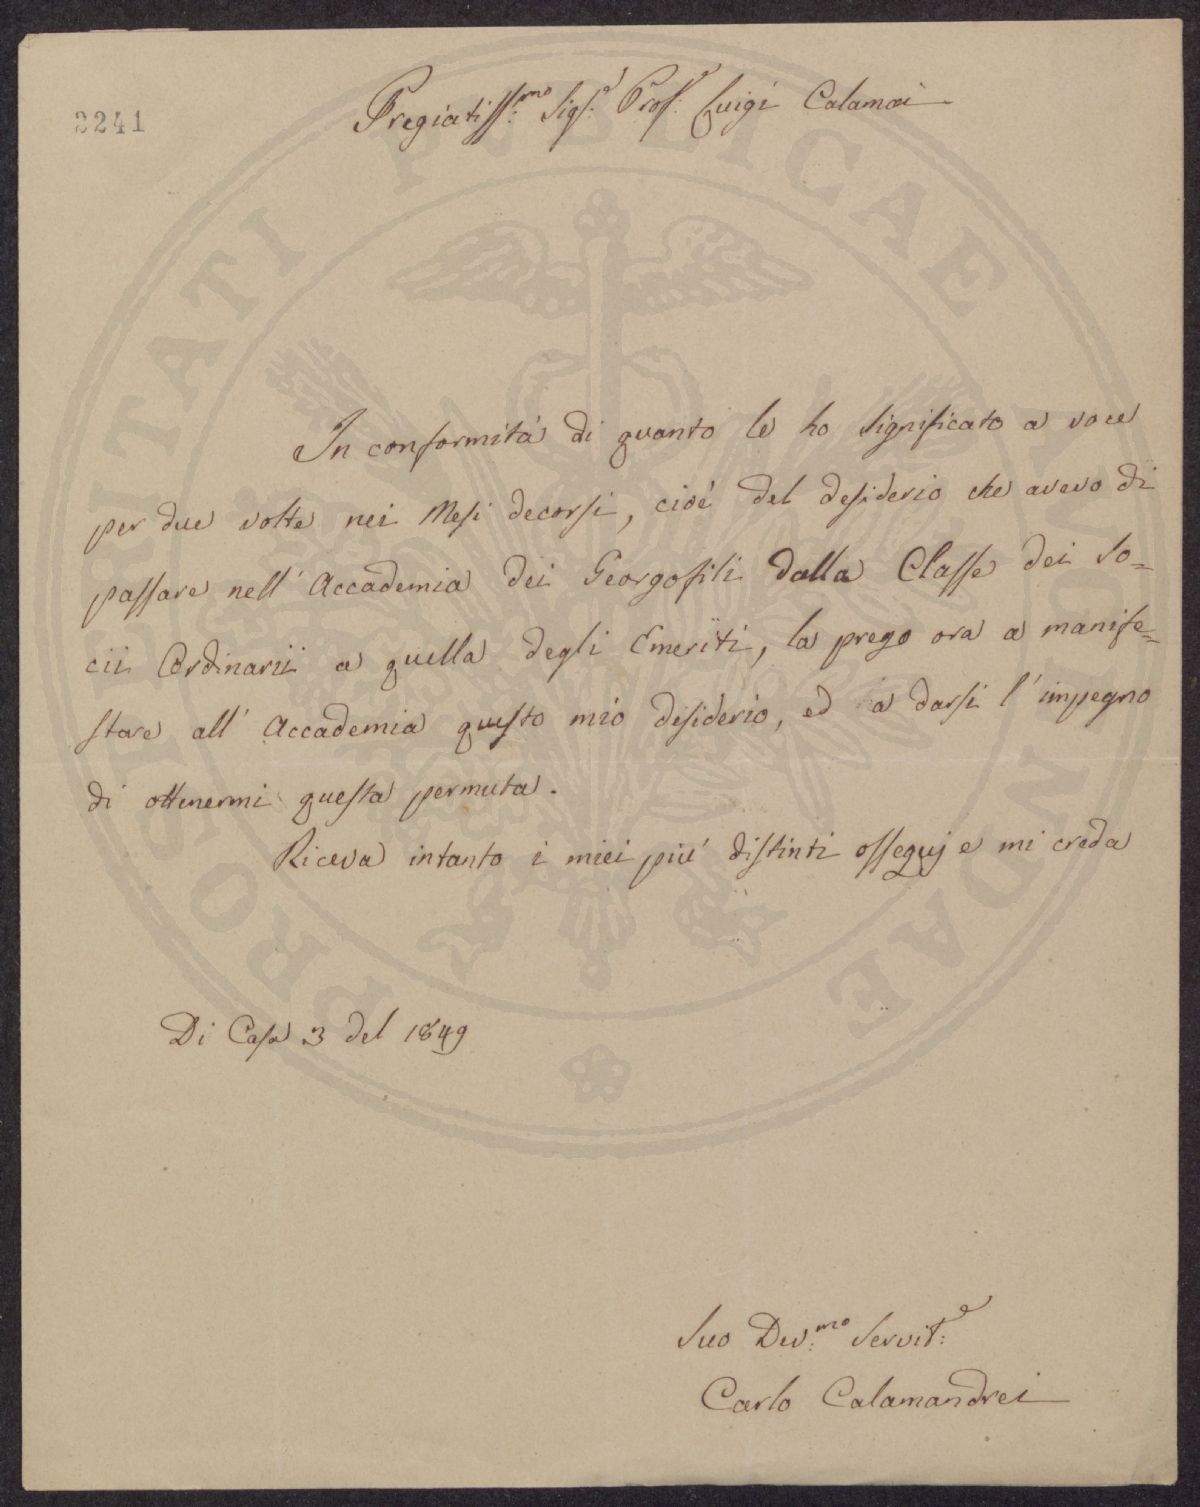 2241
Pregiatiss:mo Sigr:e Prof:e Luigi Calamai
In conformità di quanto le ho significato a voce
per due volte nei Mesi decorsi, cioè del desiderio che avevo di
passare nell' Accademia dei Georgofili dalla Classe dei So=
cii Ordinarii a quella degli Emeriti, la prego ora a manife=
stare all' Accademia questo mio desiderio, ed a darsi l' impegno
di ottenermi questa permuta.
Riceva intanto i miei più distinti ossequj e mi creda
Di Casa 3 del 1849
Suo Dev:mo Servit:e
Carlo Calamandrei
PROSPERITATI PUBLICAE AUGENDAE